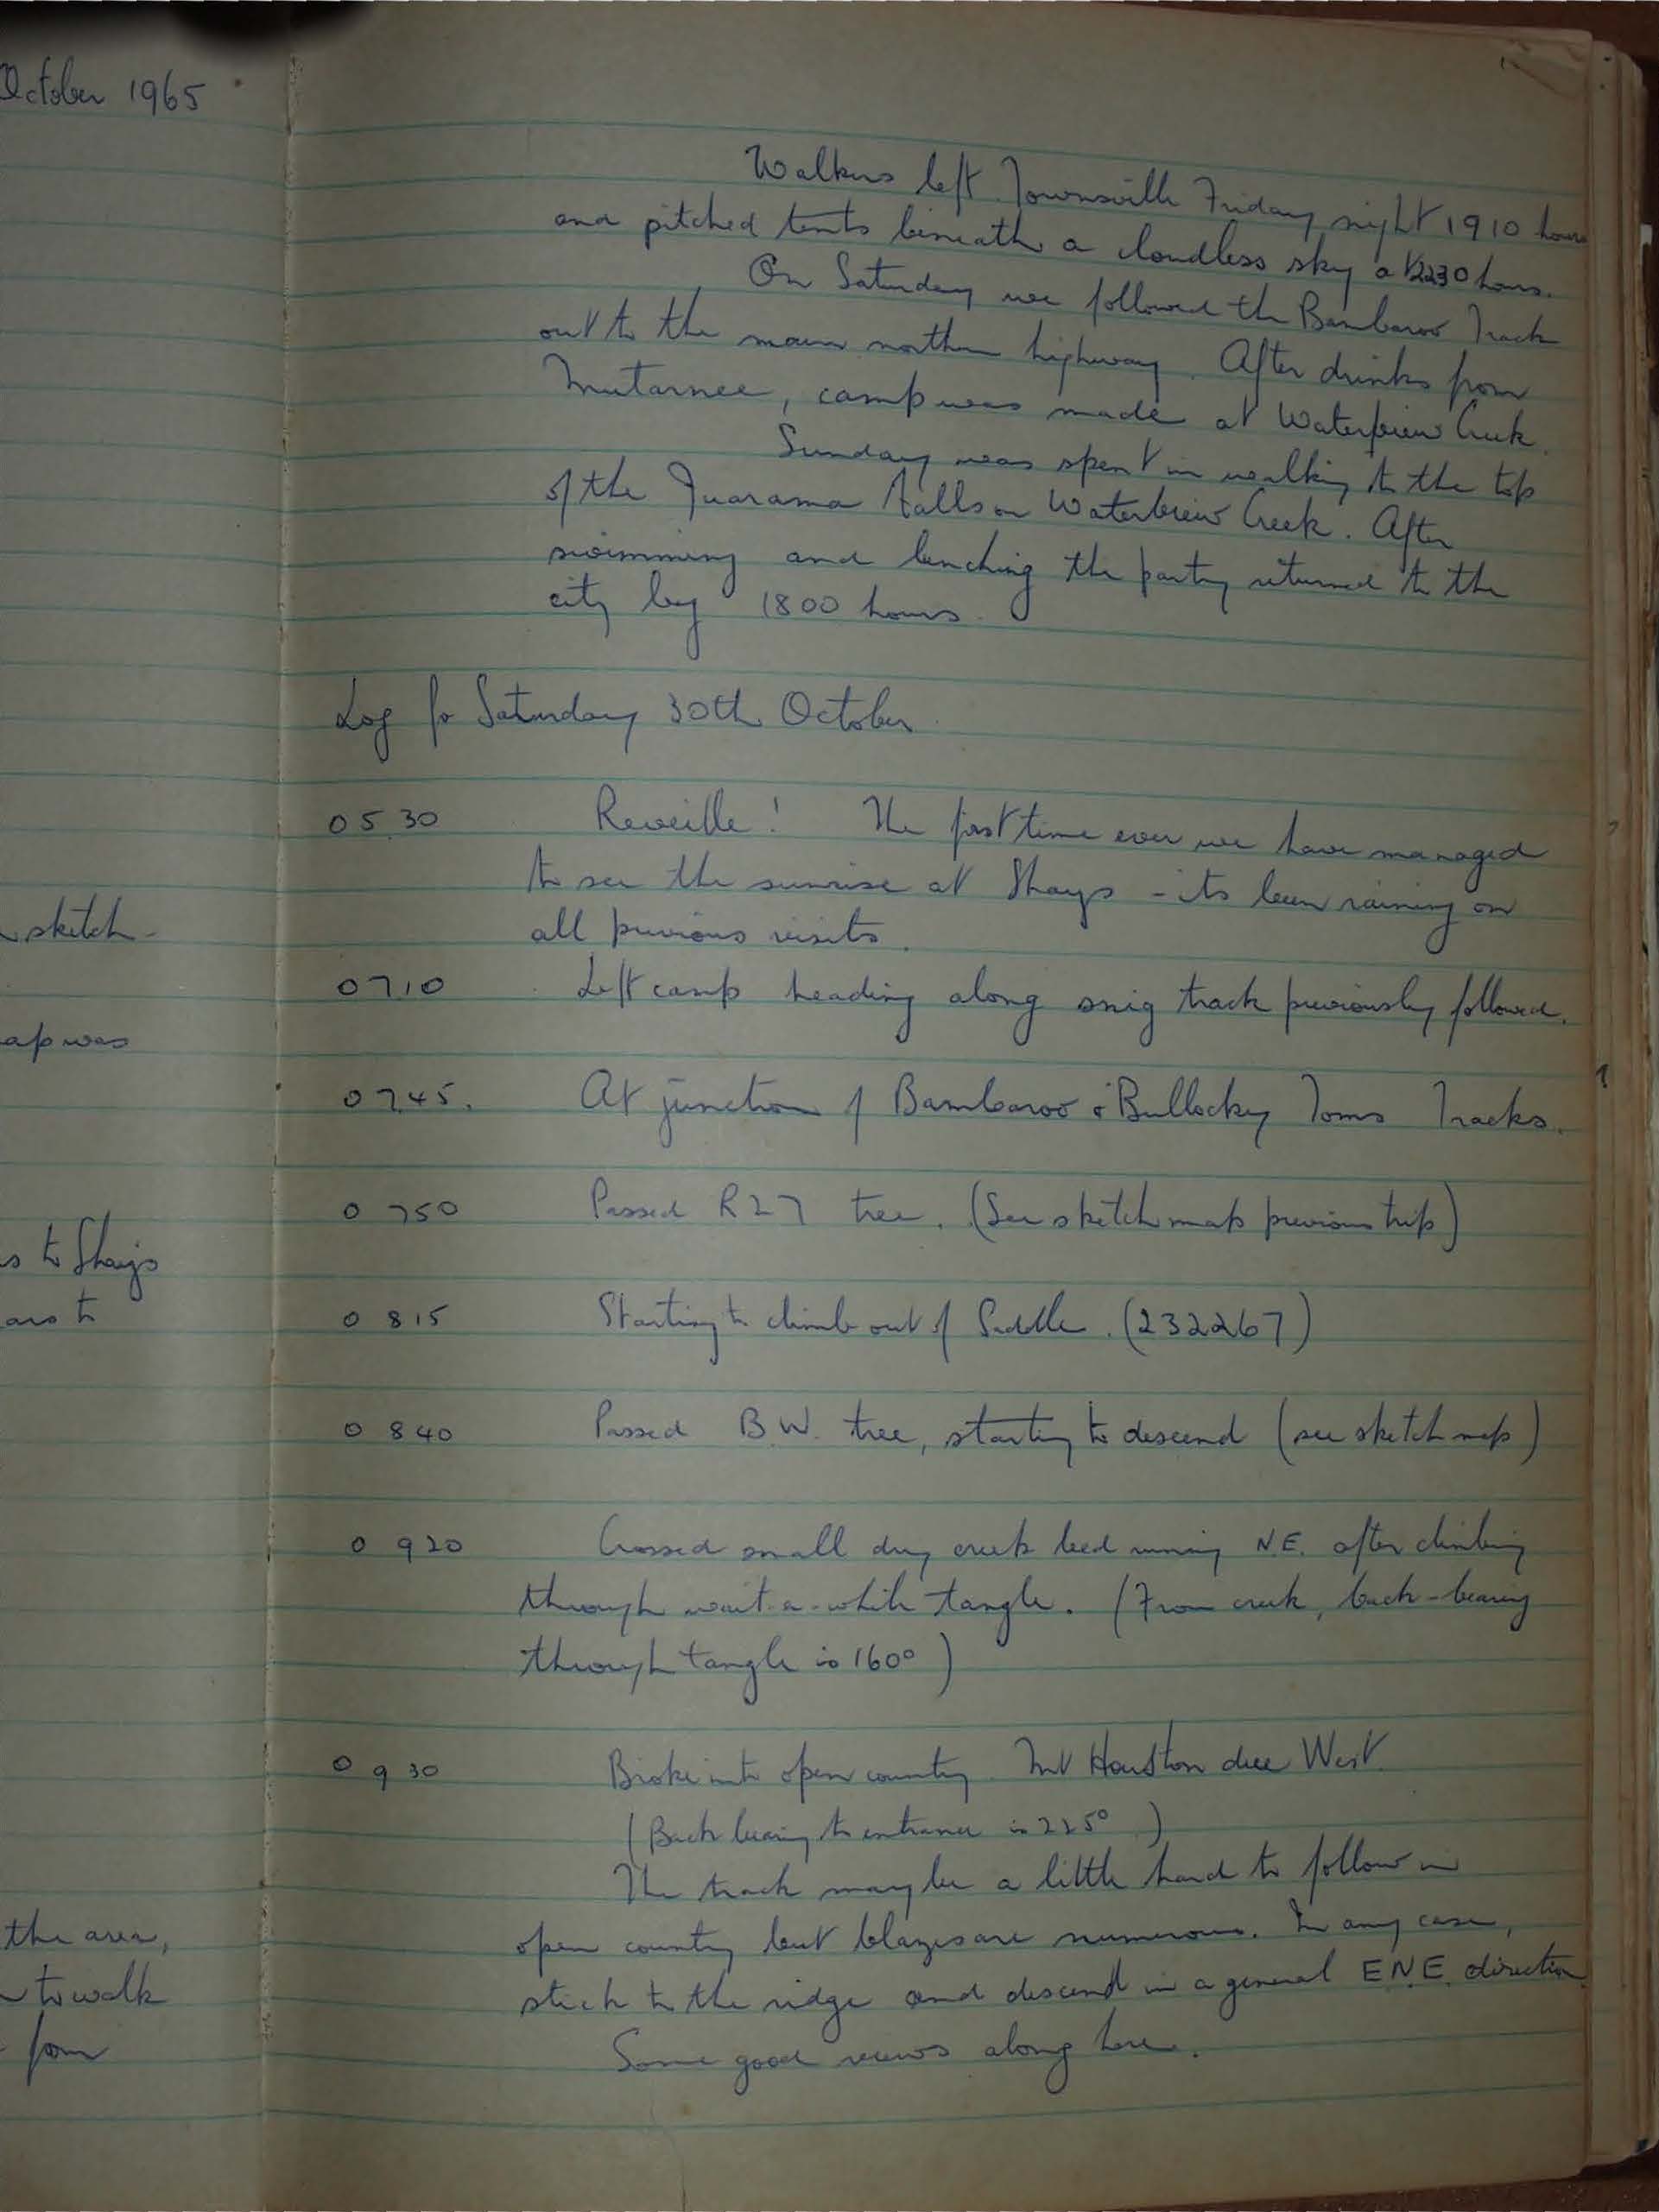 October 1965
sketch
ap was
s to Shays
ars to
the area,
to walk
from
Walkers left Townsville Friday night 1910 hours
and pitched tents beneath a cloudless sky at 2230 hours.
On Saturday we followed the Bambaroo Track
out to the main northern highway. After drinks from
Mutarnee, camp was made at Waterview Creek.
Sunday was spent in walking to the top
of the Juarama Falls on Waterview Creek. After
swimming and lunching the party returned to the
city by 1800 hours.
Log for Saturday 30th October.
05.30 Reveille! The first time ever we have managed
to see the sunrise at Shays - its been raining on
all previous visits.
07.10 Left camp heading along snig track previously followed.
07.45. At junction of Bambaroo & Bullocky Toms Tracks.
0750 Passed R27 tree. (See sketch map previous trip)
0815 Starting to climb out of Saddle. (232267)
0840 Passed B.W. tree, starting to descend (see sketch map)
0920 Crossed small dry creek bed running N.E. after climbing
through wait-a-while tangle. (From creek, back-bearing
through tangle is 160°)
0930 Broke into open country. Mt Houston due West.
(Back bearing to entrance is 225°)
The track may be a little hard to follow in
open country but blazes are numerous. In any case,
stick to the ridge and descend in a general E.N.E. direction.
Some good views along here.